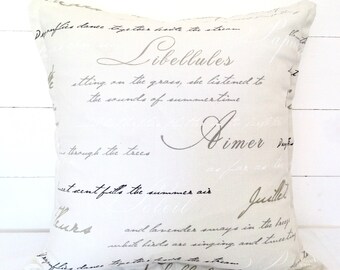 Dragonflies dance together beside the stream
Libellules
sitting on the grass, she listened to
the sounds of summertime
Aimer
through the trees
sweet scent fills the summer air
Juillet
and lavender sways in the breeze
while birds are singing and
Dragonflies dance together beside the stream